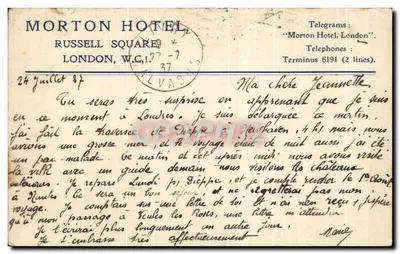 MORTON HOTEL
RUSSELL SQUARE
LONDON, W.C.1.
Telegrams:
"Morton Hotel, London".
Telephones:
Terminus 6191 (2 lines).
22-7
37
CALVADOS
24 Juillet 37
Ma chère Jeannette
Tu seras très surprise en apprenant que je suis
en ce moment à Londres. Je suis embarquée ce matin.
J'ai fait la traversée de Dieppe Newhaven 4h1 mais nous
avions une grosse mer, et le voyage étant de nuit aussi j'ai été
un peu malade. Ce matin et cet après midi nous avons visité
la ville avec un guide demain nous visitons les châteaux
Je repars Lundi pr Dieppe, et je compte rentrer le 1er Août
à Nantes. Ce sera un bon et ne regretterai pas mon
voyage. Je compte sur une lettre de toi et n'ai rien reçu, j'espère
qu'à mon passage à Veules les Roses, une lettre m'attendra
Je t'écrirai plus longuement un autre jour.
Je t'embrasse très affectueusement